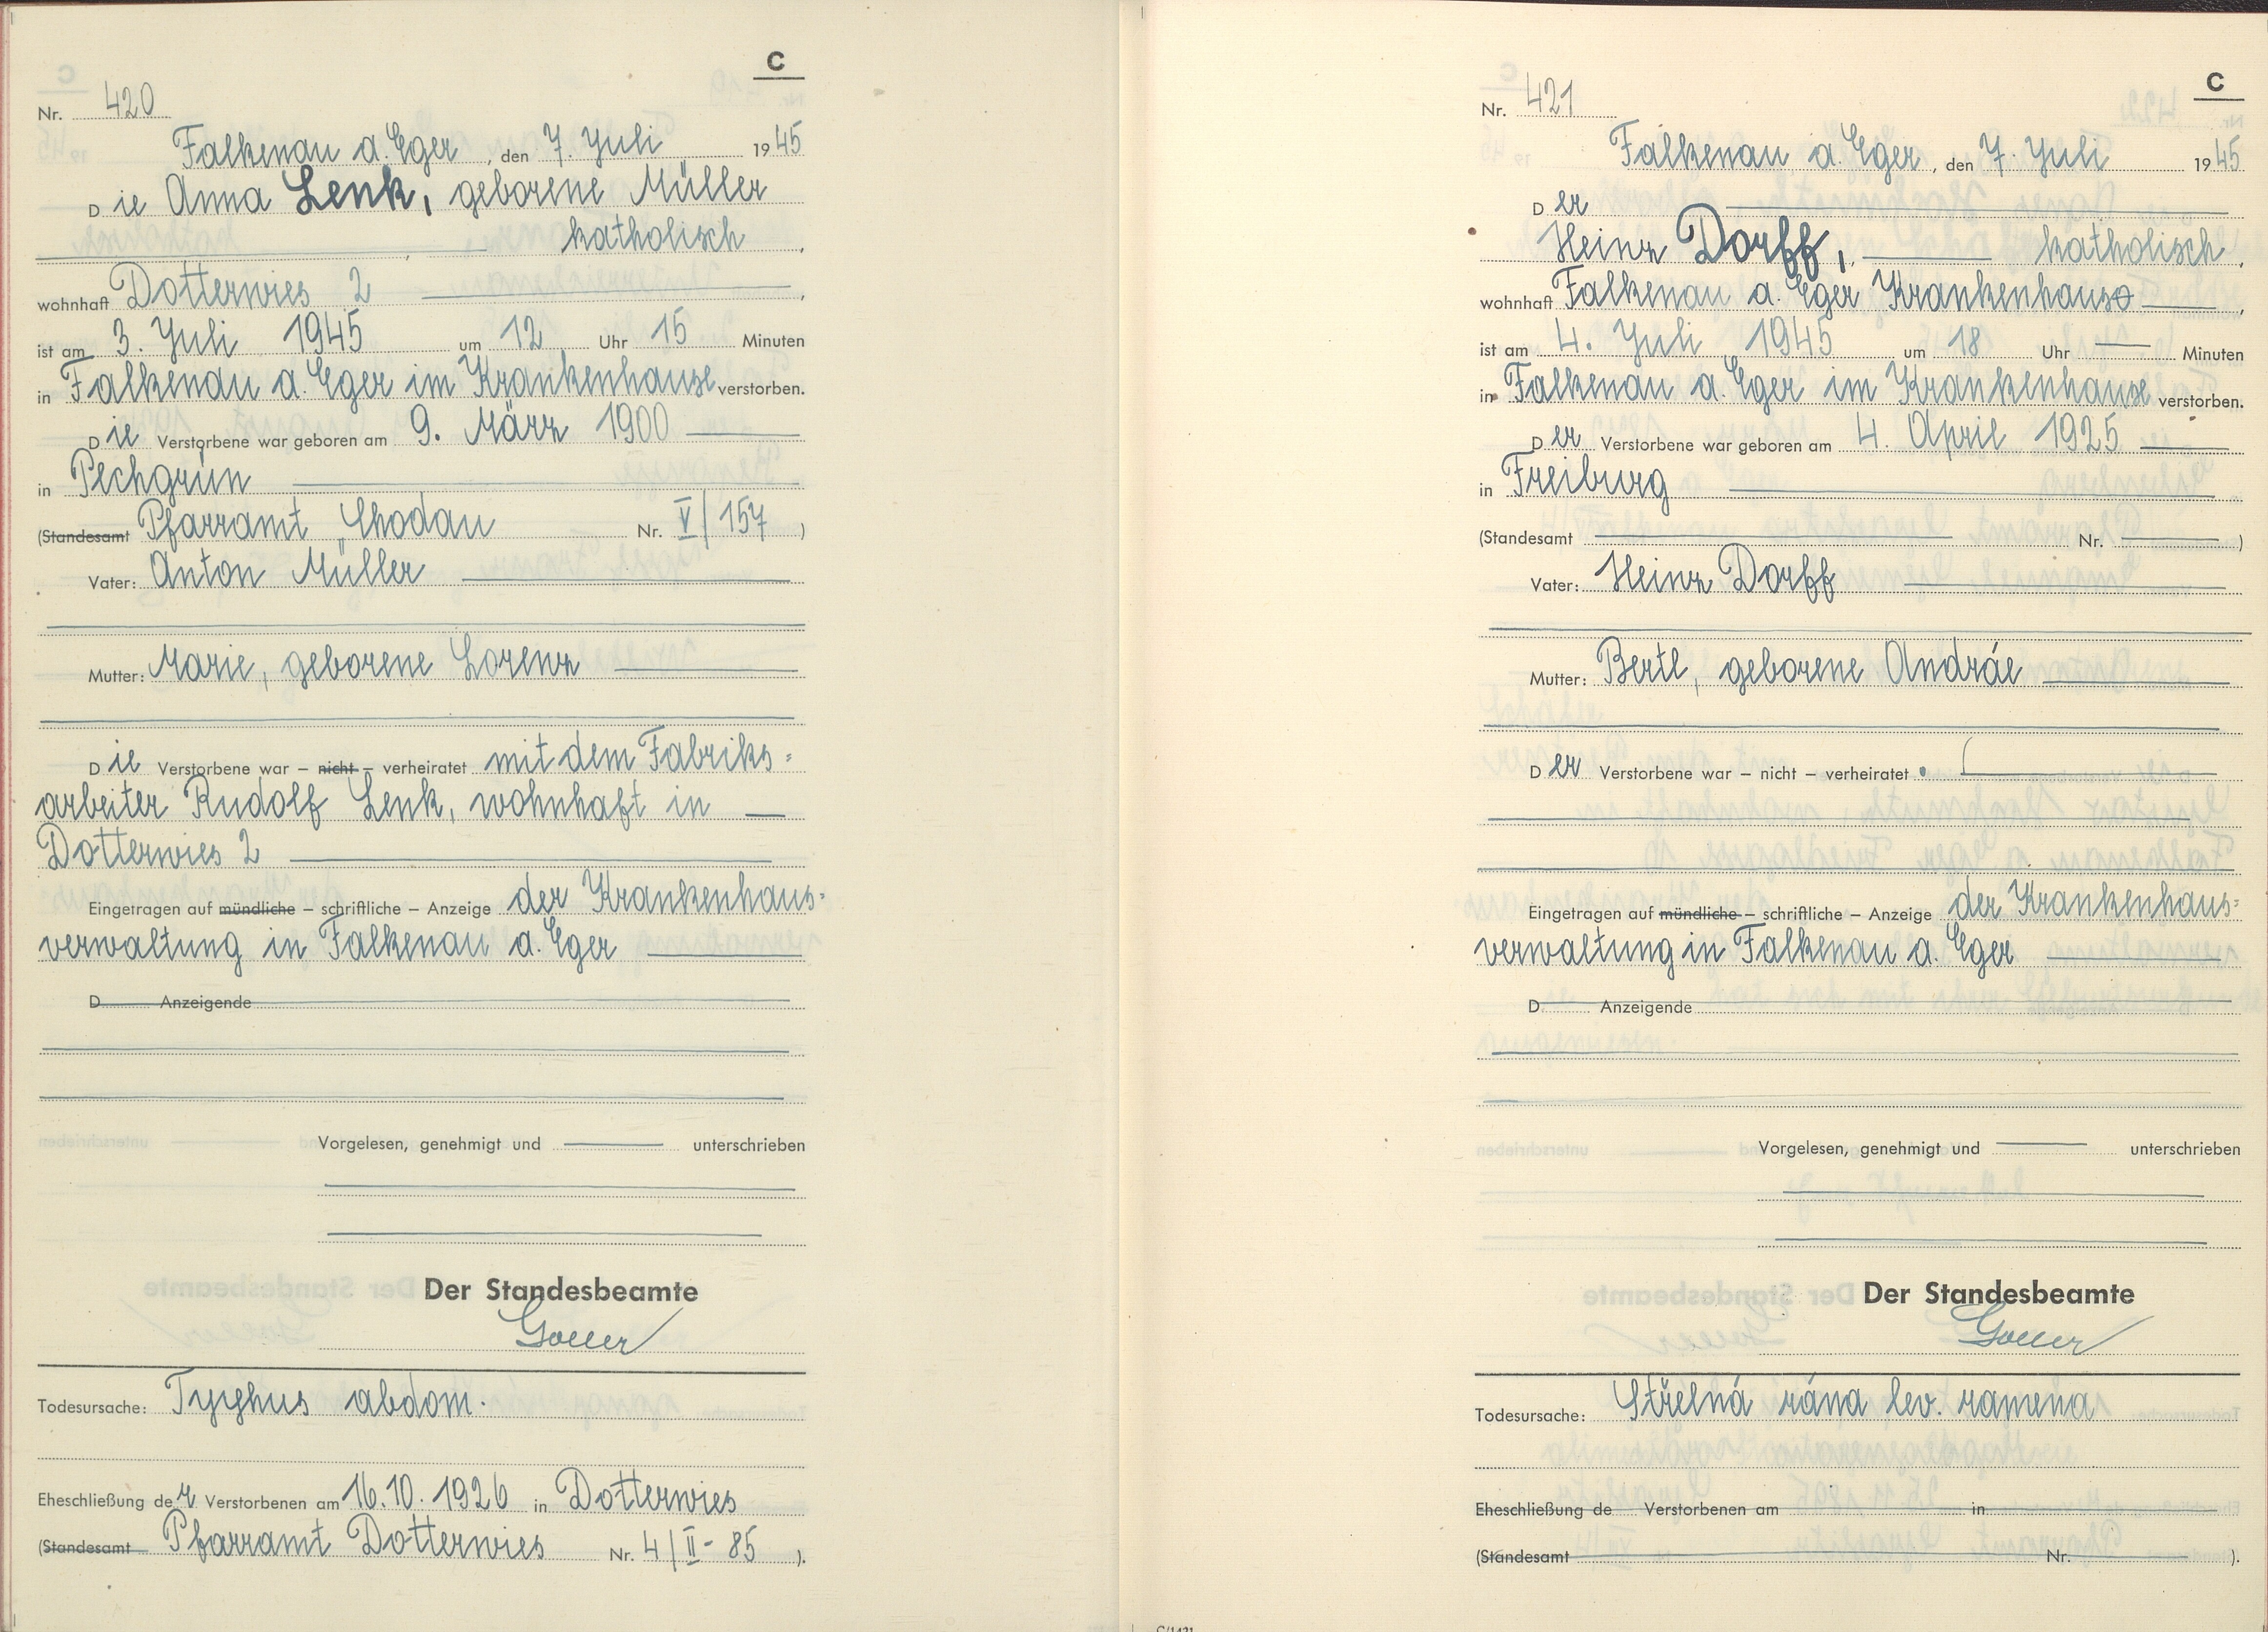 C
Nr. 420
Falkenau a. Eger, den 7. Juli 1945
Die Anna Lenk, geborene Müller
katholisch,
wohnhaft Dotterwies 2,
ist am 3. Juli 1945 um 12 Uhr 15 Minuten
in Falkenau a. Eger im Krankenhause verstorben.
Die Verstorbene war geboren am 9. März 1900
in Pechgrün
(Standesamt Pfarramt Chodau Nr. V/157)
Vater: Anton Müller
Mutter: Marie, geborene Lorenz
Die Verstorbene war – nicht – verheiratet mit dem Fabriks=
arbeiter Rudolf Lenk, wohnhaft in
Dotterwies 2
Eingetragen auf mündliche – schriftliche – Anzeige der Krankenhaus=
verwaltung in Falkenau a. Eger
D Anzeigende
Vorgelesen, genehmigt und unterschrieben
Der Standesbeamte
Todesursache: Typhus abdom.
Eheschließung der Verstorbenen am 16.10.1926 in Dotterwies
(Standesamt Pfarramt Dotterwies Nr. 4/II-85).
C
Nr. 421
Falkenau a. Eger, den 7. Juli 1945
Der
Heinz Dorff, katholisch,
wohnhaft Falkenau a. Eger Krankenhaus,
ist am 4. Juli 1945 um 18 Uhr — Minuten
in Falkenau a. Eger im Krankenhause verstorben.
Der Verstorbene war geboren am 4. April 1925
in Freiburg
(Standesamt Nr. )
Vater: Heinz Dorff
Mutter: Bertl, geborene Andráe
Der Verstorbene war – nicht – verheiratet.
Eingetragen auf mündliche – schriftliche – Anzeige der Krankenhaus=
verwaltung in Falkenau a. Eger
D Anzeigende
Vorgelesen, genehmigt und unterschrieben
Der Standesbeamte
Todesursache: Střelná rána lev. ramena
Eheschließung de Verstorbenen am in
(Standesamt Nr. ).